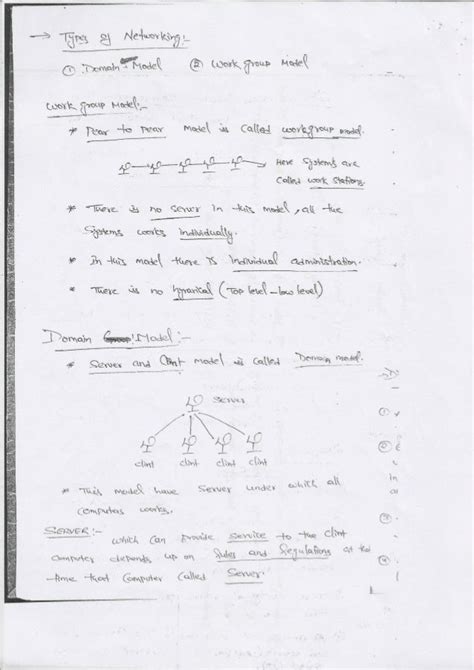 → Types of Networking:-
① Domain Model ② Work group Model
Work group Model:-
* Pear to pear model is called workgroup model.
Here systems are
called work stations.
* There is no server in this model, all the
systems works individually.
* In this model there is individual administration.
* There is no (Top level-low level)
Domain Model:-
* Server and Clint model is called Domain model.
server
clint clint clint clint
* This model have server under which all
computers works.
SERVER:-
which can provide service to the clint
computer depends up on rules and regulations at the
time that computer called server.